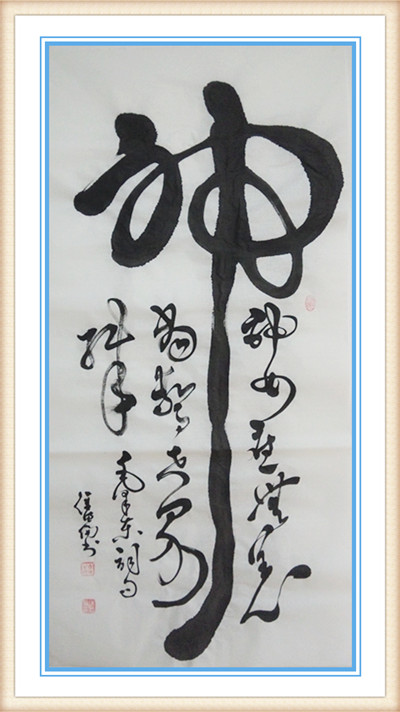 神
神女应無恙
當驚世界
殊
毛泽东词句